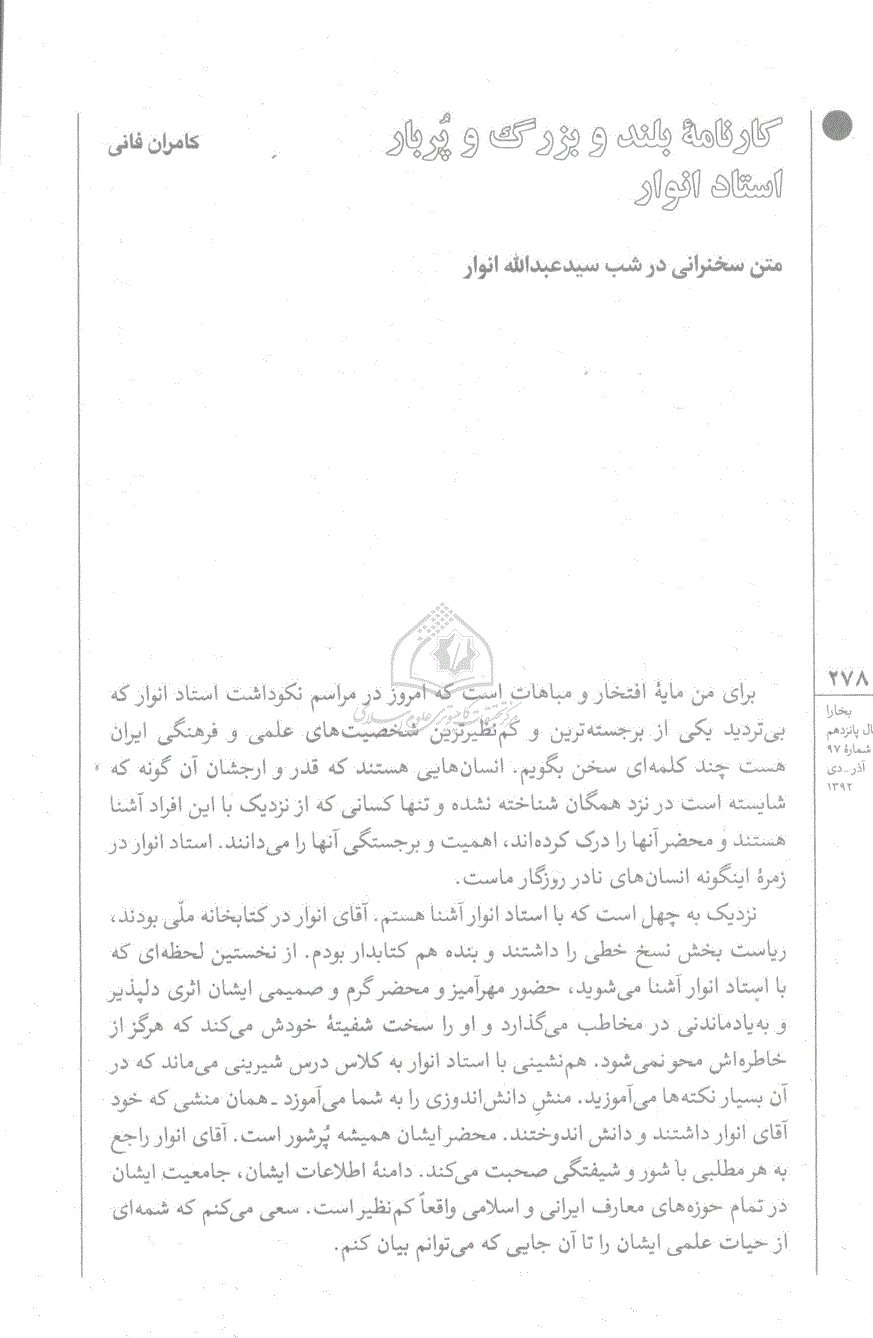 کارنامهٔ بلند و بزرگ و پُربار
استاد انوار
کامران فانی
متن سخنرانی در شب سیدعبدالله انوار
۲۷۸
بخارا
ال پانزدهم
شمارهٔ ۹۷
آذر ـ دی
۱۳۹۲
مرکز تحقیقات کامپیوتری علوم اسلامی
برای من مایهٔ افتخار و مباهات است که امروز در مراسم نکوداشت استاد انوار که
بی‌تردید یکی از برجسته‌ترین و کم‌نظیرترین شخصیت‌های علمی و فرهنگی ایران
هست چند کلمه‌ای سخن بگویم. انسان‌هایی هستند که قدر و ارجشان آن گونه که
شایسته است در نزد همگان شناخته نشده و تنها کسانی که از نزدیک با این افراد آشنا
هستند و محضر آنها را درک کرده‌اند، اهمیت و برجستگی آنها را می‌دانند. استاد انوار در
زمرهٔ اینگونه انسان‌های نادر روزگار ماست.
نزدیک به چهل است که با استاد انوار آشنا هستم. آقای انوار در کتابخانه ملّی بودند،
ریاست بخش نسخ خطی را داشتند و بنده هم کتابدار بودم. از نخستین لحظه‌ای که
با استاد انوار آشنا می‌شوید، حضور مهرآمیز و محضر گرم و صمیمی ایشان اثری دلپذیر
و به‌یادماندنی در مخاطب می‌گذارد و او را سخت شفیتهٔ خودش می‌کند که هرگز از
خاطره‌اش محو نمی‌شود. هم‌نشینی با استاد انوار به کلاس درس شیرینی می‌ماند که در
آن بسیار نکته‌ها می‌آموزید. منشِ دانش‌اندوزی را به شما می‌آموزد ـ همان منشی که خود
آقای انوار داشتند و دانش اندوختند. محضر ایشان همیشه پُرشور است. آقای انوار راجع
به هر مطلبی با شور و شیفتگی صحبت می‌کند. دامنهٔ اطلاعات ایشان، جامعیت ایشان
در تمام حوزه‌های معارف ایرانی و اسلامی واقعاً کم‌نظیر است. سعی می‌کنم که شمه‌ای
از حیات علمی ایشان را تا آن جایی که می‌توانم بیان کنم.